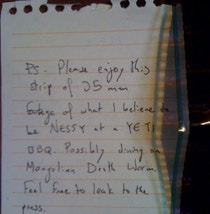 P.S. Please enjoy this
strip of 35 mm
footage of what I believe to
be NESSY at a YETI
BBQ. Possibly dining on
Mongolian Death Worm.
Feel free to leak to the
press.